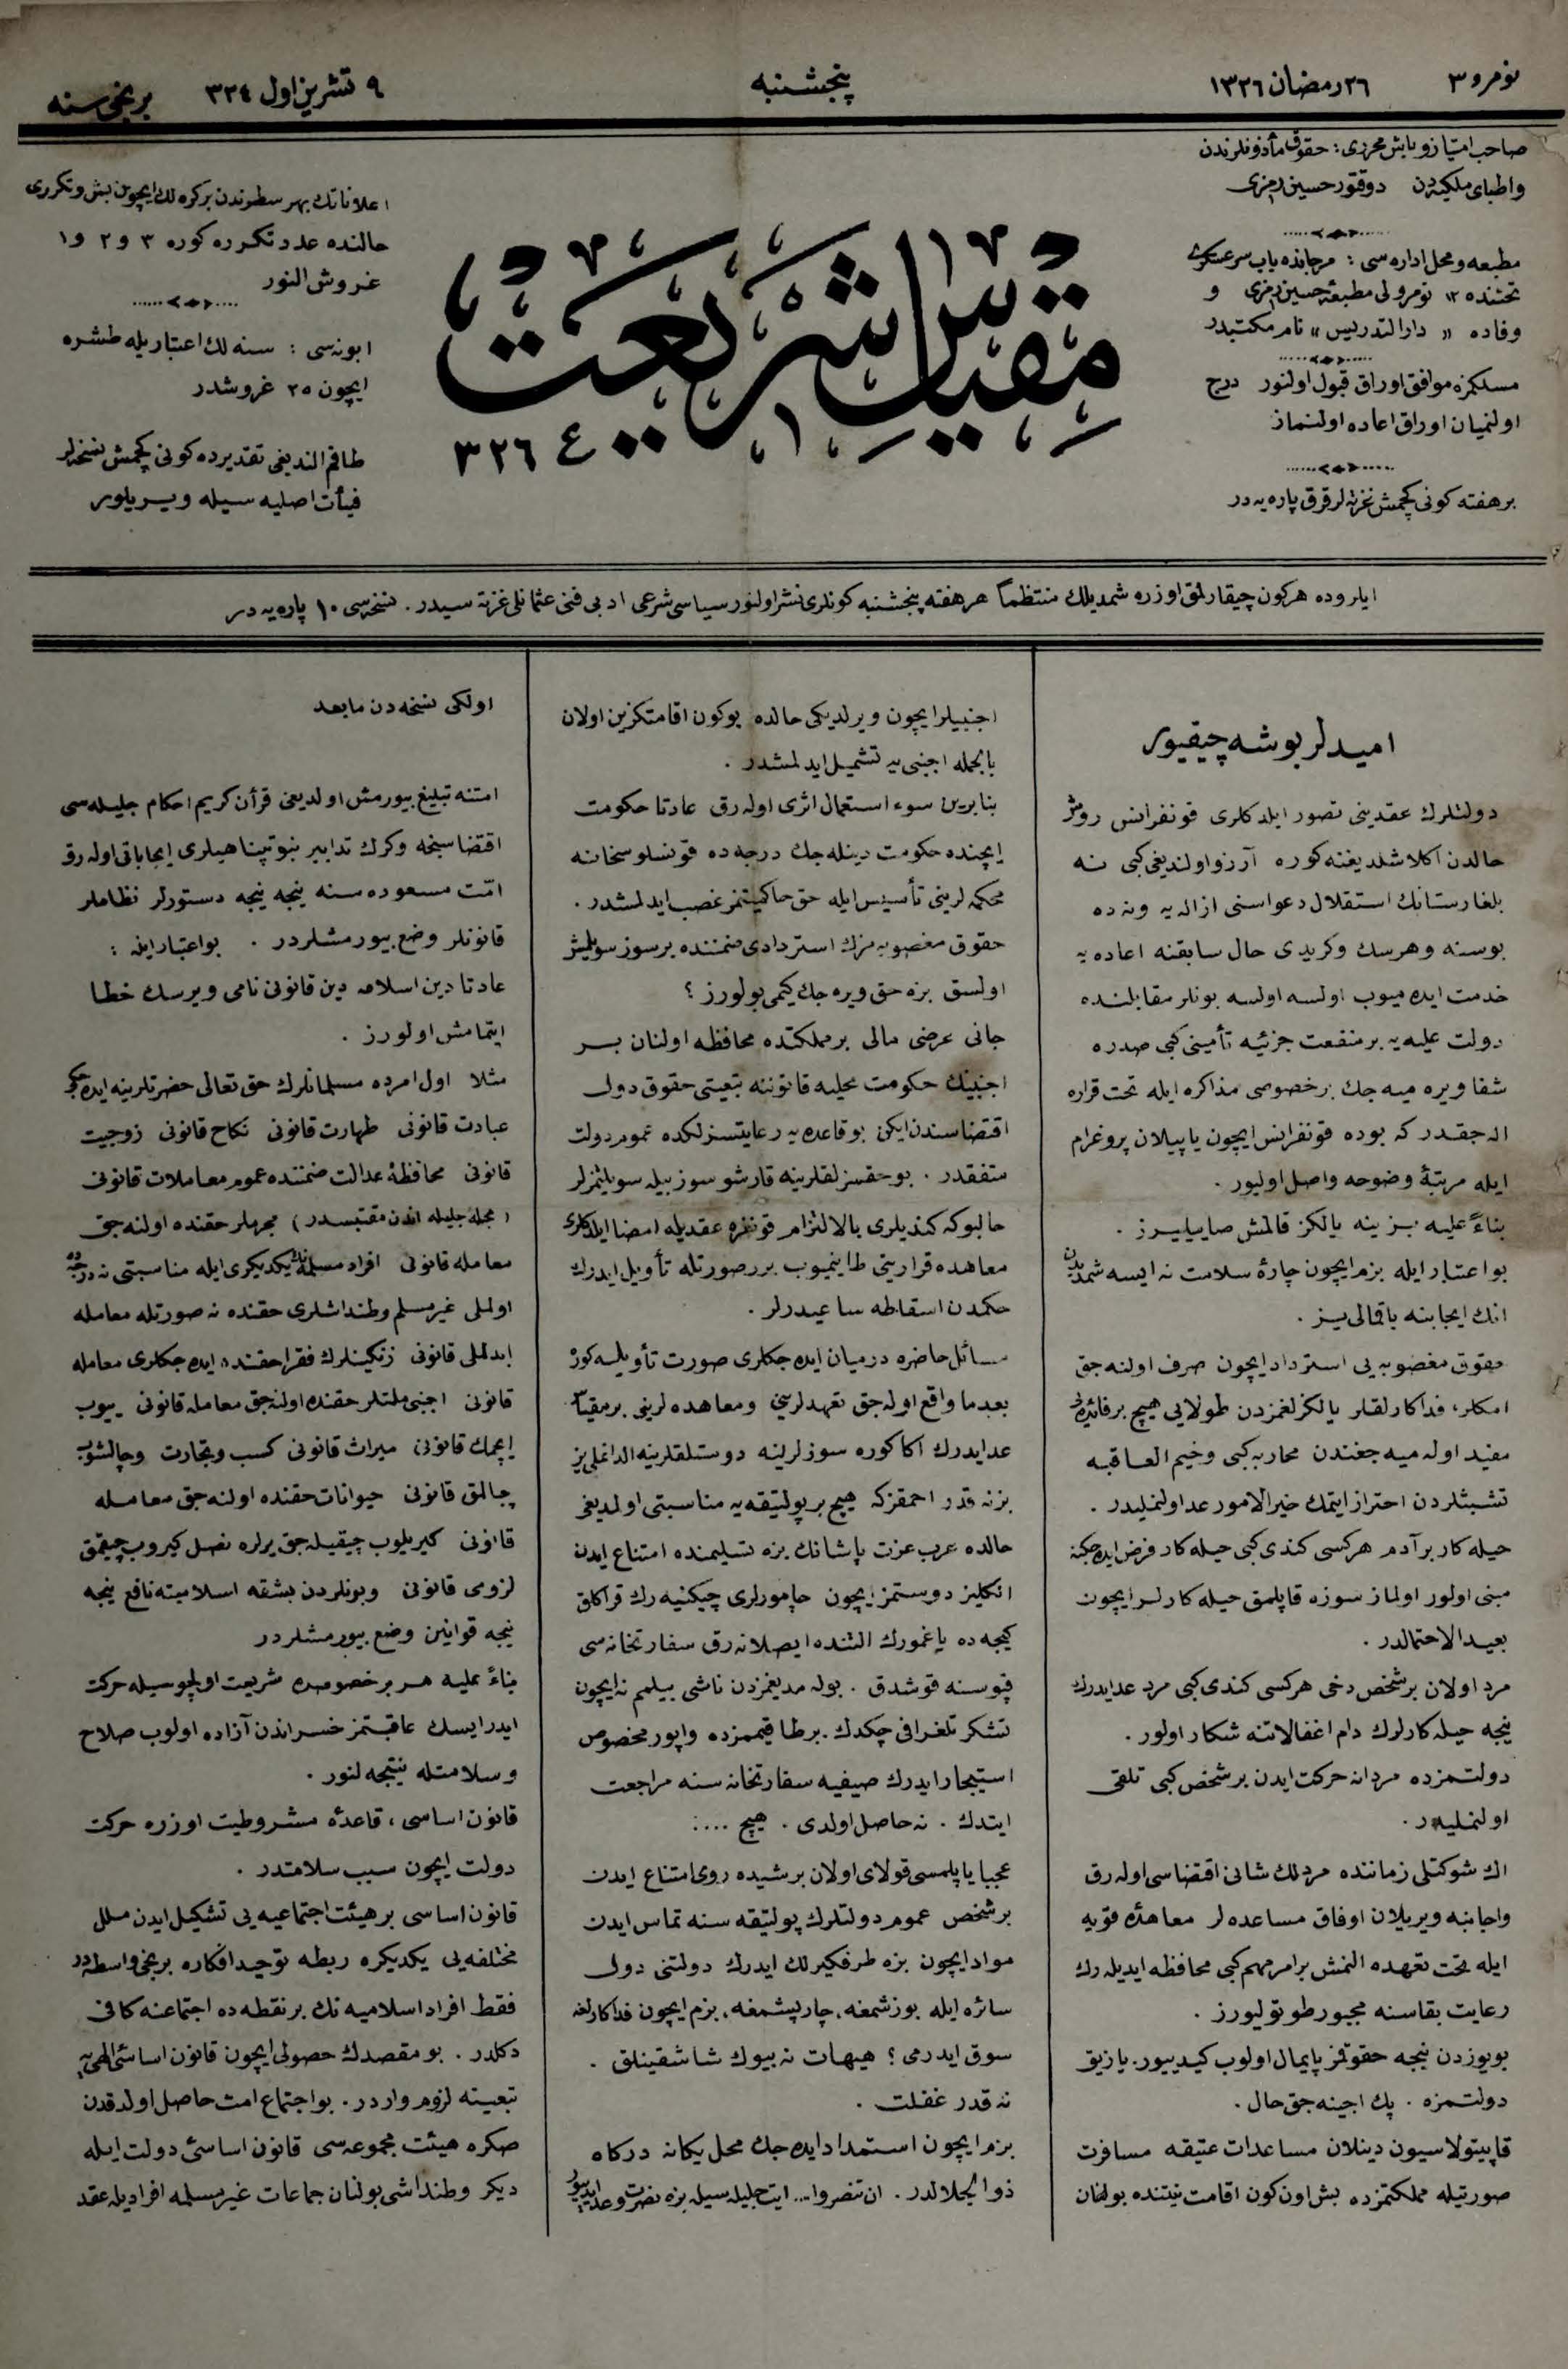 نومرو ٣
٢٦ رمضان ١٣٢٦
پنجشنبه
٩ تشرین اول ٣٢٤
برنجی سنه
صاحب امتیاز و باش محرری : حقوق مأذونلرندن
و اطبای ملکیه‌دن دوقتور حسین رمزی
مطبعه و محل اداره‌سی : مرجانده باب سرعسکری
تحتنده ١٢ نومرولی مطبعهٔ حسین رمزی و
وفاده « دار التدریس » نام مکتبدر
مسلکمزه موافق اوراق قبول اولنور درج
اولنمیان اوراق اعاده اولنماز
بر هفته کونی کچمش غزته‌لر قرق پاره‌یه‌در
مقیاس شریعت
٣٢٦
اعلاناتك بهر سطرندن بر کره‌لك ایچون بش و تکرری
حالنده عدد تکرره کوره ٣ و ٢ و ١
غروش النور
ابونه‌سی : سنه‌لك اعتباریله طشره
ایچون ٢٥ غروشدر
طاقم الندیغی تقدیرده کونی کچمش نسخه‌لر
فیأت اصلیه سیله ویریلور
ایلروده هرکون چیقارلمق اوزره شمدیلك منتظماً هر هفته پنجشنبه کونلری نشر اولنور سیاسی شرعی ادبی فنی عثمانلی غزته سیدر . نسخه‌سی ١٠ پاره‌یه در
امیدلر بوشه چیقیور
دولتلرك عقدینی تصور ایلدکلری قونفرانس روش
حالدن اکلاشلدیغنه کوره آرزو اولندیغی کبی نه
بلغارستانك استقلال دعواسنی ازاله‌یه ونه ده
بوسنه وهرسك وکریدی حال سابقنه اعاده‌یه
خدمت ایده‌میوب اولسه اولسه بونلر مقابلنده
دولت علیه‌یه بر منفعت جزئیه تأمینی کبی صدره
شفا ویره‌میه‌جك بر خصوصی مذاکره ایله تحت قراره
اله‌جقدر که بوده قونفرانس ایچون یاپیلان پروغرام
ایله مرتبهٔ وضوحه واصل اولیور .
بناءً علیه بز ینه یالکز قالمش صاییلیرز .
بو اعتبار ایله بزم ایچون چارهٔ سلامت نه ایسه شمدیدن
انك ایجابنه باقمالی‌یز .
حقوق مغصوبه‌یی استرداد ایچون صرف اولنه‌جق
امکلر ، فداکارلقلر یالکزلغمزدن طولایی هیچ بر فائده‌یی
مفید اوله‌میه‌جغندن محاربه کبی وخیم العاقبه
تشبثلردن احتراز ایتمك خیر الامور عد اولنملیدر .
حیله‌کار بر آدم هرکسی کندی کبی حیله‌کار فرض ایده‌جکنه
مبنی اولور اولماز سوزه قاپلمق حیله‌کارلر ایچون
بعید الاحتمالدر .
مرد اولان بر شخص دخی هرکسی کندی کبی مرد عد ایدرك
نیجه حیله‌کارلرك دام اغفالاتنه شکار اولور .
دولتمزده مردانه حرکت ایدن بر شخص کبی تلقی
اولنملیدر .
اك شوکتلی زماننده مردلك شانی اقتضاسی اوله‌رق
واجانبه ویریلان اوفاق مساعده‌لر معاهدهٔ قویه
ایله تحت تعهده النمش بر امر مهم کبی محافظه ایدیله‌رك
رعایت بقاسنه مجبور طوتولیورز .
بویوزدن نیجه حقوقمز پایمال اولوب کیدییور . یازیق
دولتمزه . پك اجینه‌جق حال .
قاپیتولاسیون دینلان مساعدات عتیقه مسافرت
صورتیله مملکتمزده بش اون کون اقامت نیتنده بولنان
اجنبیلر ایچون ویرلدیکی حالده بوکون اقامتکزین اولان
بالجمله اجنبی‌یه تشمیل ایدلمشدر .
بنابرین سوء استعمال اثری اوله‌رق عادتا حکومت
ایچنده حکومت دینله‌جك درجه‌ده قونسلوسخانه
محکمه‌لرینی تأسیس ایله حق حاکمیتمز غصب ایدلمشدر .
حقوق مغصوبه‌مزك استردادی ضمننده بر سوز سویلمش
اولسق بزه حق ویره‌جك کیمی بولورز ؟
جانی عرضی مالی بر مملکتده محافظه اولنان بر
اجنبینك حکومت محلیه قانوننه تبعیتی حقوق دول
اقتضاسندن ایکن بو قاعده‌یه رعایتسزلکده عموم دولت
متفقدر . بو حقسزلقلرینه قارشو سوز بیله سویلنمزلر
حالبوکه کندیلری بالالتزام قونغره عقدیله امضا ایلدکلری
معاهده قراریتی طانیمیوب برر صورتله تأویل ایدرك
حکمدن اسقاطه ساعیدرلر .
مسائل حاضره درمیان ایده‌جکلری صورت تأویله کوره
بعدما واقع اوله‌جق تعهدلرینی ومعاهده‌لرینی بر مقیاس
عد ایدرك اکا کوره سوزلرینه دوستلقلرینه الدانملی‌یز
بز نه قدر احمقز که هیچ بر پولیتقه‌یه مناسبتی اولمدیغی
حالده عرب عزت پاشانك بزه تسلیمنده امتناع ایدن
انکلیز دوستمز ایچون چامورلری چیکنیه‌رك قراکلق
کیجه‌ده یاغمورك التنده ایصلانه‌رق سفارتخانه‌سی
قپوسنه قوشدق . یوله‌مدیغمزدن ناشی بیلمم نه ایچون
تشکر تلغرافی چکدك . بر طاقیممزده واپور مخصوص
استیجار ایدرك صیفیه سفارتخانه سنه مراجعت
ایتدك . نه حاصل اولدی . هیچ ....
عجبا یاپلمسی قولای اولان بر شیده روی امتناع ایدن
بر شخص عموم دولتلرك پولیتقه سنه تماس ایدن
مواد ایچون بزه طرفکیرلك ایدرك دولتنی دول
سائره ایله بوزشمغه ، چارپیشمغه ، بزم ایچون فداکارلغه
سوق ایدرمی ؟ هیهات نه بیوك شاشقینلق .
نه قدر غفلت .
بزم ایچون استمداد ایده‌جك محل یکانه درکاه
ذوالجلالدر . ان تنصروا... ایت جلیله سیله بزه نصرت وعد ایدیور
اولکی نسخه‌دن مابعد
امتنه تبلیغ بیورمش اولدیغی قرآن کریم احکام جلیله‌سی
اقتضاسنجه وکرك تدابیر نبوتپناهیلری ایجاباتی اوله‌رق
امّت مسعوده سنه نیجه نیجه دستورلر نظاملر
قانونلر وضع بیورمشلردر . بو اعتبار ایله :
عادتا دین اسلامه دین قانونی نامی ویرسك خطا
ایتمامش اولورز .
مثلا اول امرده مسلمانلرك حق تعالی حضرتلرینه ایده‌جکی
عبادت قانونی طهارت قانونی نکاح قانونی زوجیت
قانونی محافظهٔ عدالت ضمننده عموم معاملات قانونی
( مجلهٔ جلیله اندن مقتبسدر ) مجرملر حقنده اولنه‌جق
معامله قانونی افراد مسلمه‌نك یکدیکری ایله مناسبتی نه درجه‌ده
اولملی غیر مسلم وطنداشلری حقنده نه صورتله معامله
ایدلملی قانونی زنکینلرك فقرا حقنده ایده‌جکلری معامله
قانونی اجنبی ملتلر حقنده اولنه‌جق معامله قانونی ییوب
ایچمك قانونی میراث قانونی کسب وتجارت وچالشوب
چالمق قانونی حیوانات حقنده اولنه‌جق معامله
قانونی کیریلوب چیقیله‌جق یرلره نصل کیروب چیقمق
لزومی قانونی وبونلردن بشقه اسلامیته نافع نیجه
نیجه قوانین وضع بیورمشلردر
بناءً علیه هر بر خصوصده شریعت اولچوسیله حرکت
ایدر ایسك عاقبتمز خسراندن آزاده اولوب صلاح
وسلامتله نتیجه‌لنور .
قانون اساسی ، قاعدهٔ مشروطیت اوزره حرکت
دولت ایچون سبب سلامتدر .
قانون اساسی بر هیئت اجتماعیه‌یی تشکیل ایدن ملل
مختلفه‌یی یکدیکره ربطه توحید افکاره برنجی واسطه‌در
فقط افراد اسلامیه‌نك بر نقطه‌ده اجتماعنه کافی
دکلدر . بو مقصدك حصولی ایچون قانون اساسئ الهی‌یه
تبعیته لزوم واردر . بو اجتماع امت حاصل اولدقدن
صکره هیئت مجموعه‌سی قانون اساسئ دولت ایله
دیکر وطنداشی بولنان جماعات غیر مسلمه افرادیله عقد